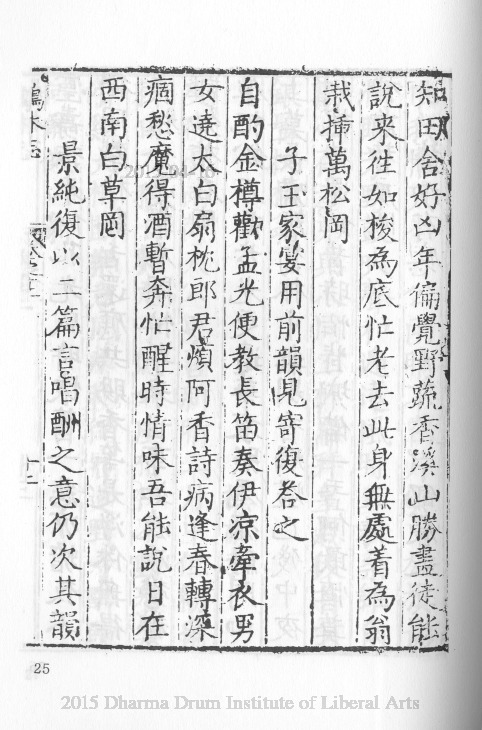 知田舍好凶年偏覺野蔬香溪山勝盡徒能
說来徃如梭為底忙老去此身無處着為翁
栽揷萬松岡
子玉家宴用前韻見寄復荅之
自酌金樽歡孟光便教長笛奏伊凉牽衣男
女遶太白扇枕郎君煩阿香詩病逢春轉深
痼愁魔得酒暫奔忙醒時情味吾能說日在
西南白草岡
景純復以二篇言唱酬之意仍次其韻
十二
25
2015 Dharma Drum Institute of Liberal Arts